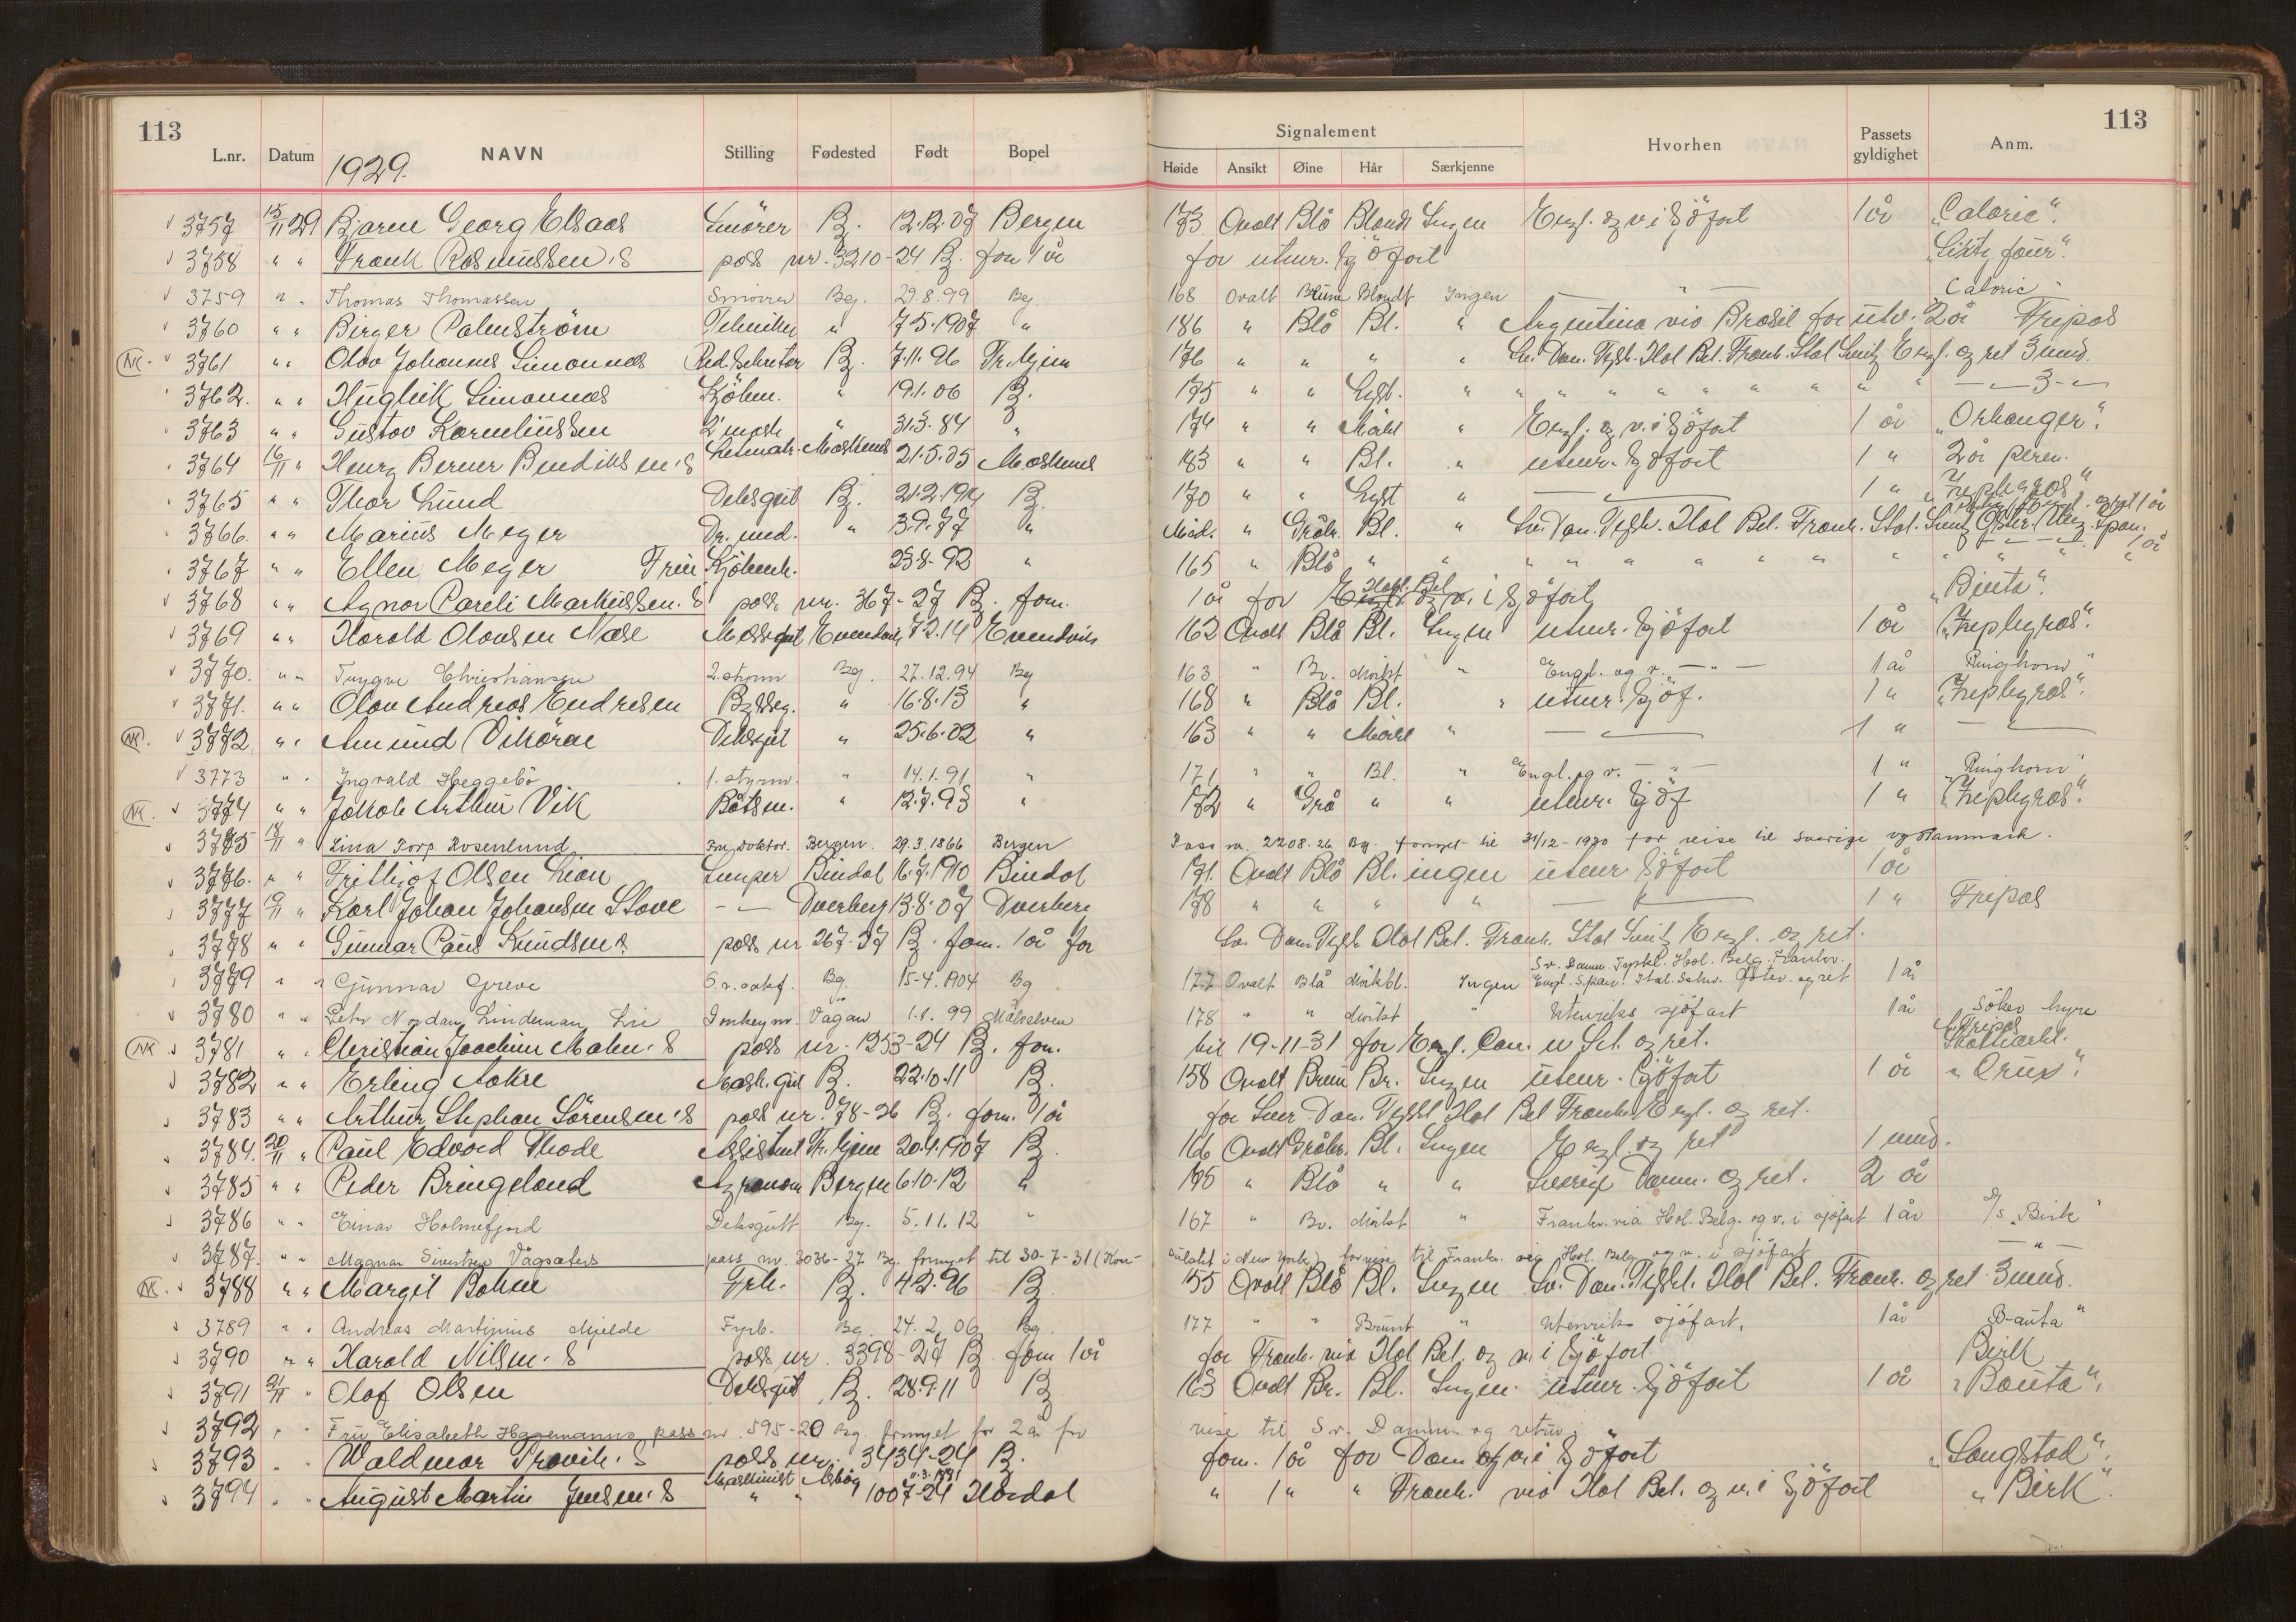 113 113
Signalement
L.nr. Datum NAVN Stilling Fødested Født Bopel Høide Ansikt Øine Hår Særkjenne Hvorhen Passets gyldighet Anm.
1929.
3757 15/11 29 Bjarne Georg Elsaas Smörer B. 12.12.07 Bergen 173 Ovalt Blå Blondt Ingen Engl. og v. i Sjöfart 1 år "Caloric".
3758 " " Frank Rasmussen's pass nr. 3210-24 B. forn 1 år for utenr. Sjöfart "Sixty four".
3759 " " Thomas Thomassen Smörer Bg. 29.8.99 Bg. 168 Ovalt Brune Blondt Ingen — " — "Caloric"
3760 " " Birger Palmström Tekniker " 7-5-1907 " 186 " Blå Bl. " Argentina via Brasil for utv. 2 år Tripos
NK. 3761 " " Olav Johannes Simonnæs Red.Sekretær B. 7.11.96 Tr.hjem 176 " " " " Sv. Dan. Tyskl. Hol Bel. Frank. Ital Sveitz Engl. og ret 3 mnd.
3762. " " Hugleik Simonnæs Kjöbm. " 19.1.06 B. 175 " " Lyst. " " " " " " " " " " — " 3 - "
3763 " " Gustav Korneliussen 2' mask " 31.3.84 " 174 " " Mörkt " Engl. og v. i Sjöfart 1 år "Orkanger".
3764 16/11 " Henry Berner Bendiksen's Letmatr. Moskenes 21.5.05 Moskenes 183 " " Bl. " utenr. Sjöfart 1 " 2 år perm.
3765 " " Thor Lund Deksgut B. 21.2.1914 B. 170 " " Lyst " — " — 1 " "Zephyros"
3766. " " Marius Meyer Dr. med. " 3.9.77 " Mid. " Gråbr. Bl. " Sv. Dan. Tyskl. Hol Bel. Frank. Ital. Sveitz Østr. Span. og ret 1 år
3767 " " Ellen Meyer Frue Kjöbenh. 23-8-92 " 165 " Blå " " " " " " " " " " " " 1 år
3768 " " Agnar Careli Markussen's pass nr. 367-27 B. forn. 1 år for Engl. Holl. Bel og v. i Sjöfart "Bjuta".
3769 " " Harald Olavsen Næse Messegut Evendvik 7.2.14 Evendvik 162 Ovalt Blå Bl. Ingen utenr. Sjöfart 1 år "Zephyros".
3770. " " Trygve Christiansen 2. styrm Bg. 27.12.94 Bg 163 " Br. Mörkt " Engl. og v. — " — 1 år "Ringhorn"
3771. " " Olav Andreas Endresen Bysseg. " 16.8.13 " 168 " Blå Bl. " utenr. Sjöf. 1 " "Zephyros".
NK. 3772 " " Amund Vikören Deksgut " 25.6.02 " 163 " " Mörkt " — " — 1 " — " —
3773 " " Ingvald Heggebö 1. styrm. " 14.1.91 " 171 " " Bl. " Engl. og v. — " — 1 " "Ringhorn"
NK. 3774 " " Jakob Arthur Vik Båtsm. " 12.7.93 " 172 " Grå " " utenr. Sjöf 1 " "Zephyros".
3775 18/11 " Lina Torp Rosenlund Fru Doktor. Bergen. 29.3.1866 Bergen Pass nr. 2208.26 Bg. fornyet til 31/12-1930 for reise til Sverige og Danmark.
3776. " " Frithjof Olsen Lian Lemper Bindal 16.7.1910 Bindal 171. Ovalt Blå Bl. ingen utenr Sjöfart 1 år
3777 19/11 " Karl Johan Johansen Stave — " — Dverberg 13.8.07 Dverberg 178 " " " " — " — 1 " Tripos
3778 " " Gunnar Paus Knudsen's pass nr 267-27 B. forn. 1 år for Sv. Dan Tyskl Hol Bel. Frank. Ital Sveitz Engl. og ret.
3779 " " Gunnar Greve O.r.sakf. Bg. 15-4.1904 Bg 177 Ovalt Blå Mörkbl. Ingen Sv. Danm. Tyskl. Hol. Belg. Frankr. Engl. Span. Ital. Schw. Østr. og ret 1 år
3780 " " Peter Nordan Lindeman Lie Vågan 1.1.99 Målselven 178 " " Mörkt " Utenriks sjöfart 1 år Söker hyre
NK 3781 " " Christian Joachim Mohn's pass nr. 1353-24 B. forn. til 19-11-31 for Engl. Can. u St. og ret. Tripos
3782 " " Erling Aakre Mask.gut B. 22.10.11 B. 158 Ovalt Brun Br. Ingen utenr. Sjöfart 1 år "Crux".
3783 " " Arthur Stephan Sörensen's pass nr. 78-26 B. forn. 1 år for Sver Dan. Tyskl Hol Bel Frank. Engl. og ret.
3784. 20/11 " Paul Edvard Thode Assistent Tr.hjem 20.4.1907 B. 166 Ovalt Gråbr. Bl. Ingen Engl. og ret 1 mnd.
3785 " " Peder Bringeland Agronom Bergen 6.10.12 " 185 " Blå " " Sverige Danm. og ret. 2 år
3786 " " Einar Holmefjord Deksgutt Bg. 5.11.12 " 167 " Br. Mörkt " Frankr. via Hol. Belg. og v. i sjöfart 1 år D/s "Birk"
3787. " " Magnar Sivertsen Vågsæter's pass nr. 3036-27 Bg. fornyet til 30-7-31 (Kon- sulatet i New York) for reise til Frankr. via Hol. Belg og v. i sjöfart — " —
NK. 3788 " " Margit Bohm Frk. B. 4.2.96 B. 155 Ovalt Blå Bl. Ingen Sv. Dan. Tyskl. Hol Bel. Frank. og ret 3 mnd.
3789 " " Andreas Martinius Mjelde Fyrb. Bg. 24.2.06 Bg. 177 " " Brunt " Utenriks sjöfart. 1 år "Bauta"
3790 " " Harald Nilsen's pass nr. 3398-27 B forn 1 år for Frank. via Hol Bel. og v. i Sjöfart Birk
3791 21/11 " Olaf Olsen Deksgut B. 28.9.11 B 163 Ovalt Br. Bl. Ingen. utenr. Sjöfart 1 år "Bauta".
3792 " " Fru Elisabeth Hagemanns pass nr. 595-20 Bg. fornyet for 2 år for reise til Sv. Danm og retur
3793 " " Waldmar Trovik's pass nr. 3434-24 B. forn. 1 år for Dan og v. i Sjöfart "Langstad".
3794 " " August Martin Jensen's Maskinist " " 1007-24 Hordal " 1 " " Frank. via Hol Bel. og v. i Sjöfart "Birk".